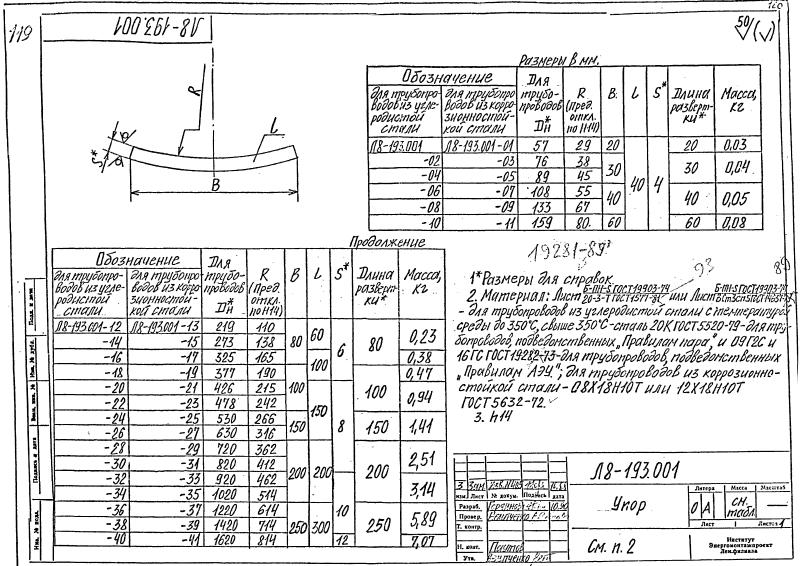 119
Л8-193.001
50
(√)
R
L
S*
B
Размеры в мм.
Обозначение Для трубопроводов Dн* R (Пред. откл. по H14) B. L S* Длина развертки* Масса, кг
для трубопроводов из углеродистой стали для трубопроводов из коррозионностойкой стали
Л8-193.001 Л8-193.001-01 57 29 20 40 4 20 0,03
-02 -03 76 38 30 30 0,04
-04 -05 89 45
-06 -07 108 55 40 40 0,05
-08 -09 133 67
-10 -11 159 80. 60 60 0,08
Продолжение
Обозначение Для трубопроводов Dн* R (Пред. откл. по H14) B L S* Длина развертки* Масса, кг
для трубопроводов из углеродистой стали для трубопроводов из коррозионностойкой стали
Л8-193.001-12 Л8-193.001-13 219 110 80 60 6 80 0,23
-14 -15 273 138
-16 -17 325 165 100 0,38
-18 -19 377 190 0,47
-20 -21 426 215 100 150 8 100 0,94
-22 -23 478 242
-24 -25 530 266 150 150 1,41
-26 -27 630 316
-28 -29 720 362 200 200 200 2,51
-30 -31 820 412
-32 -33 920 462 3,14
-34 -35 1020 514
-36 -37 1220 614 250 300 10 250 5,89
-38 -39 1420 714
-40 -41 1620 814 12 7,07
19281-89
93
89
1* Размеры для справок
2. Материал: Лист Б-ПН-S ГОСТ19903-74 / 20-3-Т ГОСТ1577-81 или Лист Б-ПН-S ГОСТ19903-74
- для трубопроводов из углеродистой стали с температурой
среды до 350°С, свыше 350°С-сталь 20К ГОСТ5520-79-для тру-
бопроводов, подведомственных „Правилам пара," и 09Г2С и
16ГС ГОСТ19282-73-для трубопроводов, подведомственных
„Правилам АЭУ"; для трубопроводов из коррозионно-
стойкой стали-08Х18Н10Т или 12Х18Н10Т
ГОСТ 5632-72.
3. h14
Л8-193.001
Упор
См. п. 2
Литера Масса Масштаб
О А см. табл.
Лист Листов 1
Институт
Энергомонтажпроект
Лен.филиала
3 Зам
Изм. Лист № докум. Подпись дата
Разраб.
Провер.
Т. контр.
Н. контр.
Утв.
Подп. и дата
Инв. № дубл.
Взам. инв. №
Подпись и дата
Инв. № подл.